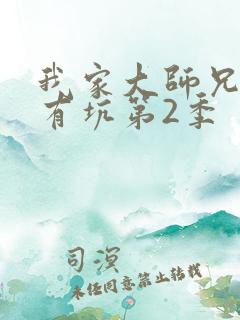 我家大师兄
有坑第2季
司溟
未经同意禁止转载